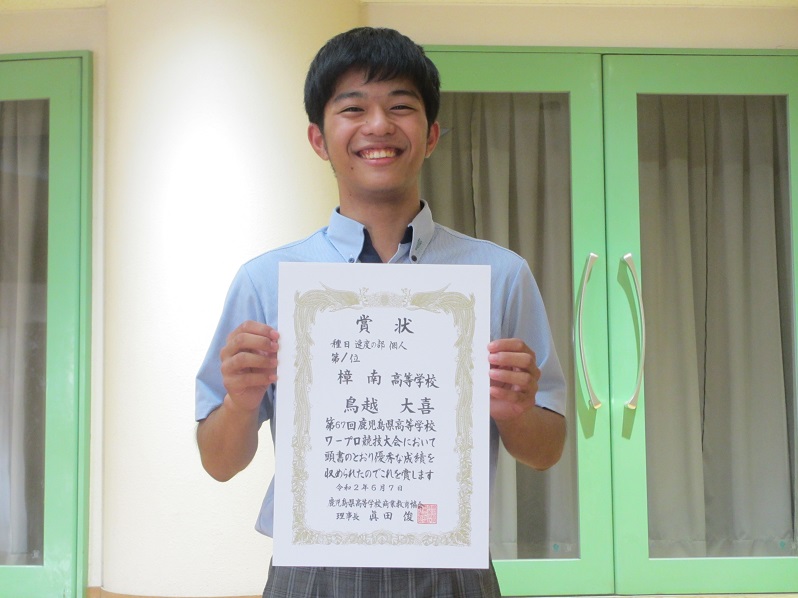 賞状
種目 速度の部 個人
第1位
樟南高等学校
鳥越 大喜
第67回鹿児島県高等学校
ワープロ競技大会において
頭書のとおり優秀な成績を
収められたのでこれを賞します
令和2年6月7日
鹿児島県高等学校商業教育協会
理事長 眞田 俊